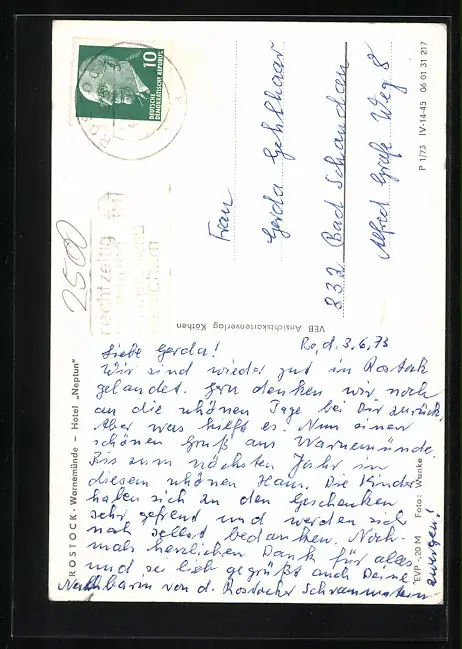 ROSTOCK
10
DEUTSCHE
DEMOKRATISCHE REPUBLIK
2500
rechtzeitig
Frau
Gerda Gehlhaar
832 Bad Schandau
Alfred Grafe Weg 8
P 1/73 IV-14-45 06 01 31 217
VEB Ansichtskartenverlag Köthen
ROSTOCK - Warnemünde – Hotel „Neptun"
EVP -,20 M Foto: Wenke
Ro, d. 3.6.73
Liebe Gerda!
Wir sind wieder gut in Rostock
gelandet. Gern denken wir noch
an die schönen Tage bei Dir zurück.
Aber was hilft es. Nun einen
schönen Gruß aus Warnemünde.
Bis zum nächsten Jahr in
diesem schönen Haus. Die Kinder
haben sich zu den Geschenken
sehr gefreut und werden sich
noch selbst bedanken. Noch-
mals herzlichen Dank für alles
und sei lieb gegrüßt auch Deine
Nachbarin von d. Rostocker